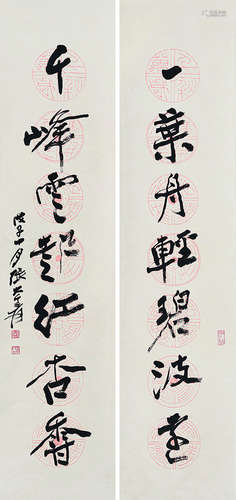 一葉舟輕碧波
千峰雲艷紅杏香
戊子十月張大千爰